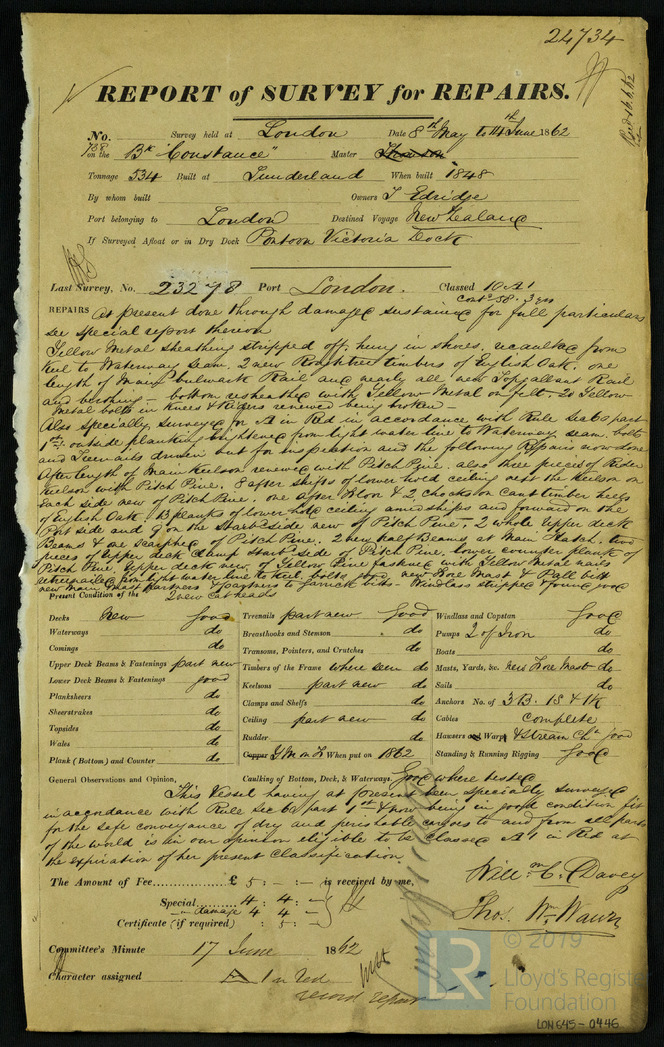 24734
REPORT of SURVEY for REPAIRS.
Recd 16.6.62
No. Survey held at London Date 8th May to 14th June 1862
738 on the Bk "Constance" Master
Tonnage 534 Built at Sunderland When built 1848
By whom built Owners J Edridge
Port belonging to London Destined Voyage New Zealand
If Surveyed Afloat or in Dry Dock Pontoon Victoria Dock
Last Survey, No. 23278 Port London. Classed 10 A1
Contd 58. 3 yrs
REPAIRS at present done through damage sustained for full particulars
see special report thereon
Yellow Metal sheathing stripped off, hung in shores, recaulked from
Keel to Waterway seam. 2 new Roughtree timbers of English Oak. one
length of Main bulwark Rail and nearly all new Topgallant Rail
and berthing – bottom resheathed with Yellow Metal on felt – 20 Yellow
Metal bolts in Knees & Riders renewed being broken –
Also specially surveyed for A in Red in accordance with Rule Sec 60 part
1st: outside planking brightened from light water line to Waterway seam, bolts
and Treenails driven out for inspection and the following Repairs now done
After length of Main Keelson renewed with Pitch Pine. also three pieces of Rider
Keelson with Pitch Pine. 5 after shifts of lower hold ceiling next the Keelson on
Each side new of Pitch Pine. one after Floor & 2 chocks on Cant timber heels
of English Oak. 13 planks of lower hold ceiling amidships and forward on the
Port side and 9 on the Starbd side new of Pitch Pine – 2 whole Upper deck
Beams & one scarphed of Pitch Pine. 2 new half Beams at Main Hatch. two
pieces of Upper deck Clamp Starbd side of Pitch Pine. lower counter plank of
Pitch Pine. Upper deck new of Yellow Pine fastened with Yellow Metal nails
retreenailed from light water line to Keel. bolts new Fore Mast & Pall bitt
new Main Mast Partners & partners to Garrick bitts – Windlass stripped & found good
Present Condition of the 2 new Catheads
Decks New Good
Waterways do
Comings do
Upper Deck Beams & Fastenings part new
Lower Deck Beams & Fastenings good
Planksheers do
Sheerstrakes do
Topsides do
Wales do
Plank (Bottom) and Counter do
Treenails part new Good
Breasthooks and Stemson do
Transoms, Pointers, and Crutches do
Timbers of the Frame where seen do
Keelsons part new do
Clamps and Shelfs do
Ceiling part new do
Rudder do
Copper Y M on F When put on 1862
Windlass and Capstan Good
Pumps 2 of Iron do
Boats do
Masts, Yards, &c. new Fore Mast do
Sails do
Anchors No. of 3 B. 1 S & 1 K
Cables complete
Hawsers and Warps & Stream Chn good
Standing & Running Rigging Good
General Observations and Opinion, Caulking of Bottom, Deck, & Waterways. Good where tested
This Vessel having at present been specially surveyed
in accordance with Rule Sec 60 part 1st & now being in good condition fit
for the safe conveyance of dry and perishable cargoes to and from all parts
of the world is in our opinion eligible to be classed A 1 in Red at
the expiration of her present Classification.
The Amount of Fee........... £ 5 : – : – is received by me,
Special............ 4 : 4 : –
– damage 4 4 : –
Certificate (if required) : 5 : –
Willm C. Davey
Thos. Wm Wawn
Committee's Minute 17 June 1862
Character assigned A 1 in Red
record repairs
© 2019
Lloyd's Register
Foundation
LR
LON645-0446